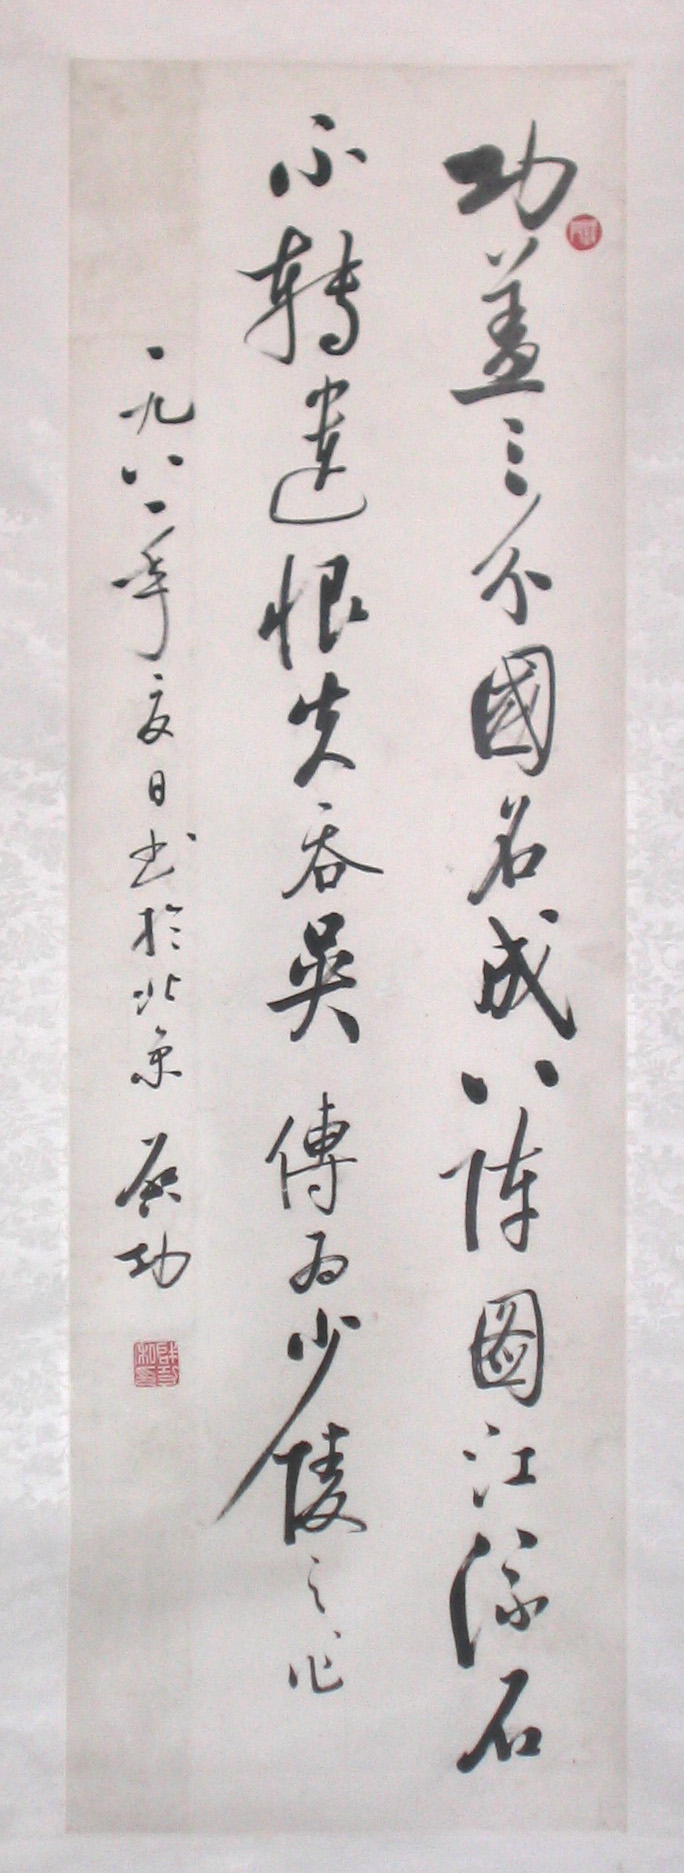 功盖三分國名成八阵圖江流石
不轉遗恨失吞吴傳为少陵之作
一九八一年夏日书於北京 启功